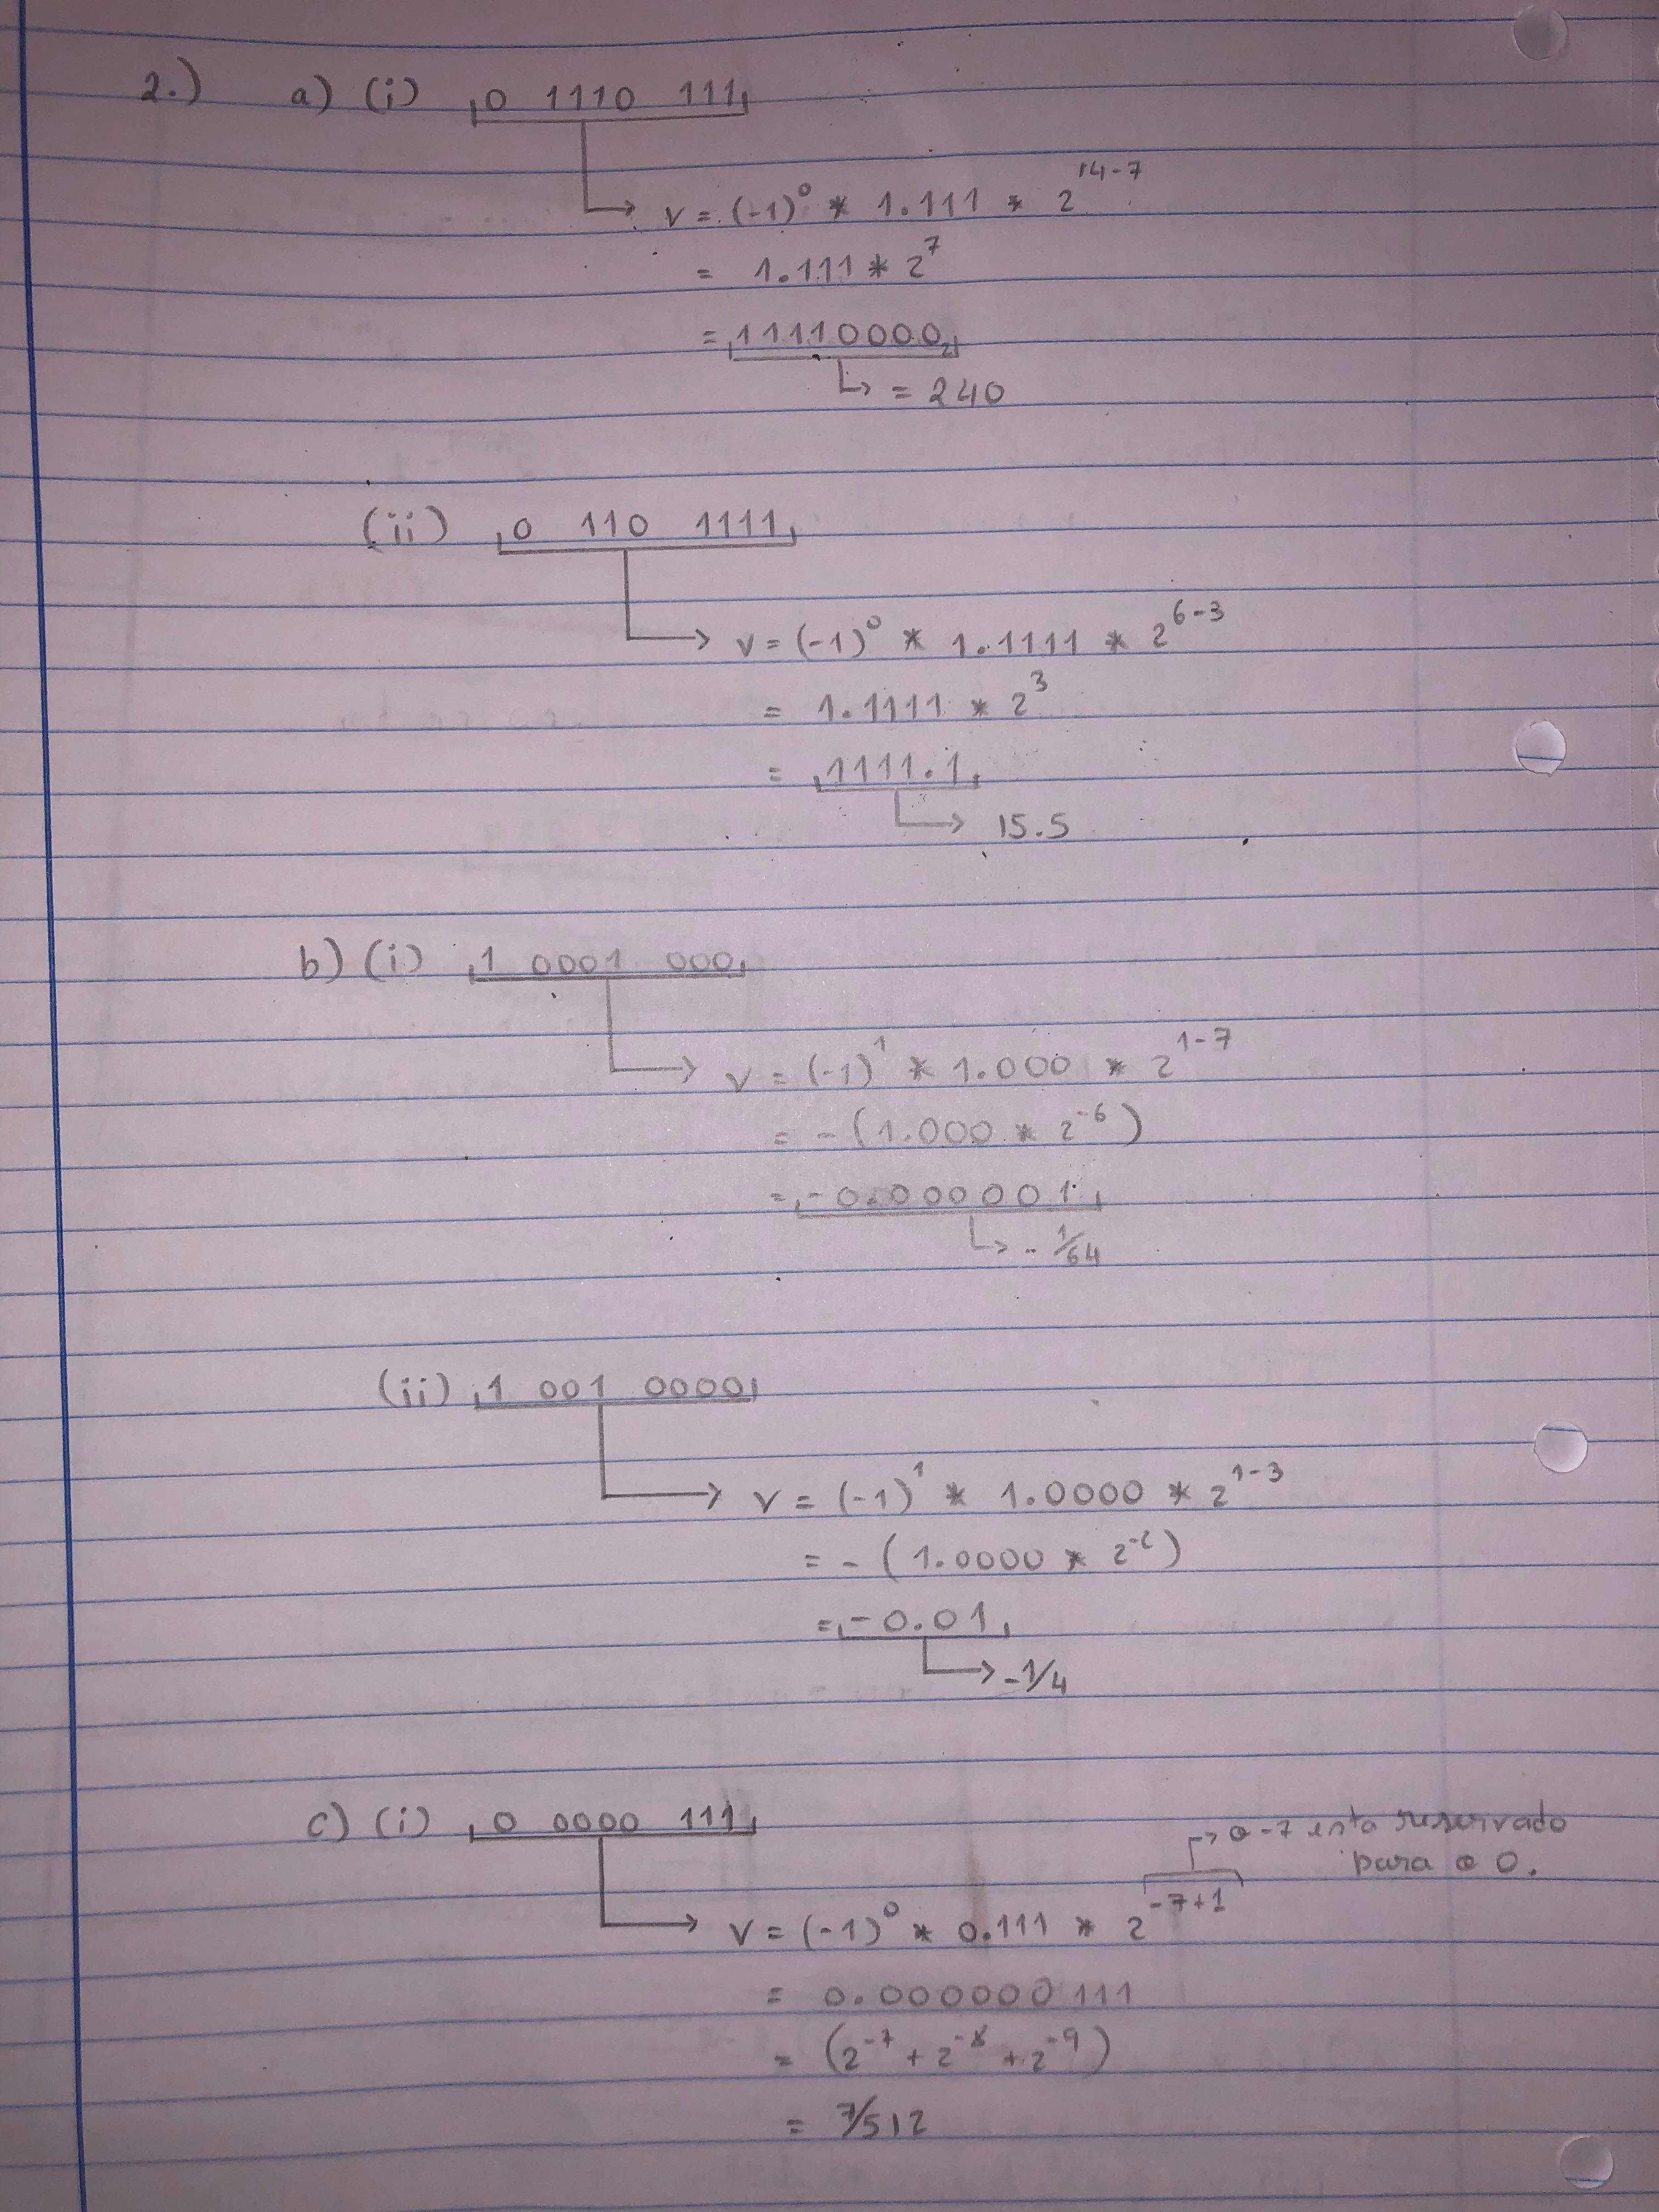 2.) a) (i) 0 1110 111
v = (-1)⁰ * 1.111 * 2¹⁴⁻⁷
= 1.111 * 2⁷
= 11110000₂
= 240
(ii) 0 110 1111
v = (-1)⁰ * 1.1111 * 2⁶⁻³
= 1.1111 * 2³
= 1111.1
15.5
b) (i) 1 0001 000
v = (-1)¹ * 1.000 * 2¹⁻⁷
= - (1.000 * 2⁻⁶)
= -0.000001
- 1/64
(ii) 1 001 0000
v = (-1)¹ * 1.0000 * 2¹⁻³
= - (1.0000 * 2⁻²)
= -0.01
-1/4
c) (i) 0 0000 111
o -7 esta reservado
para o 0.
v = (-1)⁰ * 0.111 * 2⁻⁷⁺¹
= 0.000000111
= (2⁻⁷ + 2⁻⁸ + 2⁻⁹)
= 7/512